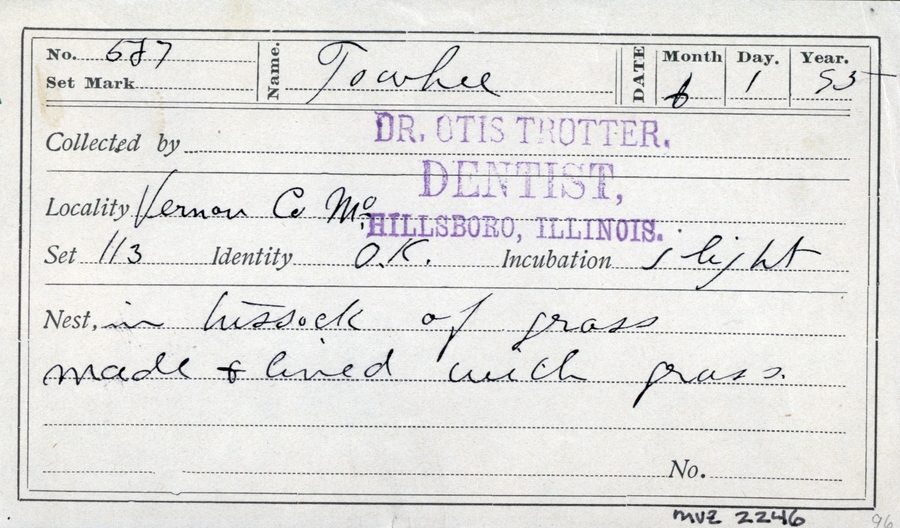 No. 587 Name. Towhee DATE Month Day. Year.
Set Mark 6 1 95
DR. OTIS TROTTER.
Collected by
DENTIST,
Locality Vernon Co Mo
HILLSBORO, ILLINOIS.
Set 113 Identity O.K. Incubation slight
Nest, in tussock of grass
made & lined with grass.
No.
MVZ 2246
96